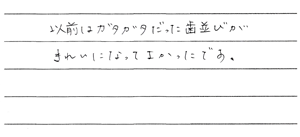 以前はガタガタだった歯並びが
きれいになってよかったです。